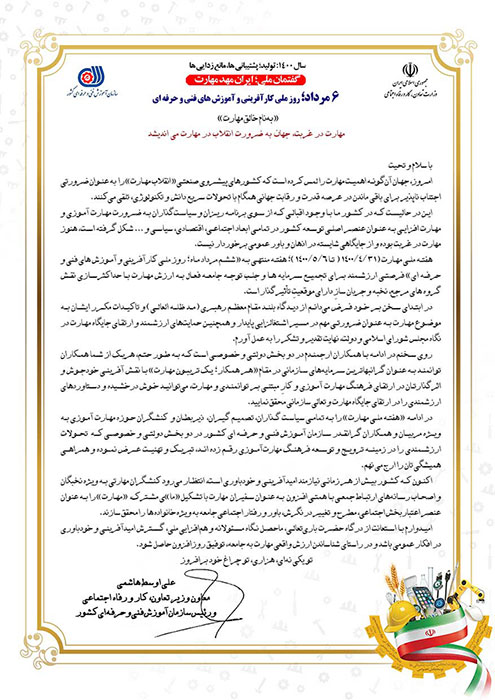 سال ۱۴۰۰: تولید؛ پشتیبانی ها، مانع زدایی ها
گفتمان ملی: ایران مهد مهارت
۶ مرداد؛ روز ملی کارآفرینی و آموزش های فنی و حرفه ای
جمهوری اسلامی ایران
وزارت تعاون، کار و رفاه اجتماعی
سازمان آموزش فنی و حرفه ای کشور
«به نام خالق مهارت»
مهارت در غربت، جهان به ضرورت انقلاب در مهارت می اندیشد
با سلام و تحیت
امروز، جهان آن گونه اهمیت مهارت را لمس کرده است که کشورهای پیشروی صنعتی «انقلاب مهارت» را به عنوان ضرورتی
اجتناب ناپذیر برای باقی ماندن در عرصه قدرت و رقابت جهانی همگام با تحولات سریع دانش و تکنولوژی، تلقی می کنند.
این در حالیست که در کشور ما با وجود اقبالی که از سوی برنامه ریزان و سیاست گذاران به ضرورت مهارت آموزی و
مهارت افزایی به عنوان عنصر اصلی توسعه کشور در تمامی ابعاد اجتماعی، اقتصادی، سیاسی و ... شکل گرفته است، هنوز
مهارت در غربت بوده و از جایگاهی شایسته در اذهان و باور عمومی برخوردار نیست.
هفته ملی مهارت (۱۴۰۰/۴/۳۱ تا ۱۴۰۰/۵/۶)؛ هفته منتهی به «ششم مرداد ماه؛ روز ملی کارآفرینی و آموزش های فنی و
حرفه ای» فرصتی ارزشمند برای تجمیع سرمایه ها و جلب توجه جامعه فعال به ارزش مهارت با حداکثرسازی نقش
گروه های مرجع، نخبه و جریان ساز دارای موقعیت تأثیرگذار است.
در ابتدای سخن بر خود فرض می دانم از دیدگاه بلند مقام معظم رهبری (مدظله العالی) و تاکیدات مکرر ایشان به
موضوع مهارت به عنوان ضرورتی مهم در مسیر اشتغالزایی پایدار و همچنین حمایت های ارزشمند و ارتقای جایگاه مهارت در
نگاه مجلس شورای اسلامی و دولت، نهایت تقدیر و تشکر را به عمل آورم.
روی سخنم در ادامه با همکاران ارجمندم در دو بخش دولتی و خصوصی است که به طور حتم، هریک از شما همکاران
توانمند به عنوان گرانبهاترین سرمایه های سازمانی در مقام «هر همکار؛ یک تریبون مهارت» با نقش آفرینی خودجوش و
اثرگذارتان در ارتقای فرهنگ مهارت آموزی و کارِ مبتنی بر توانمندی و مهارت، می توانید خوش درخشیده و دستاوردهای
ارزشمندی را در ارتقای جایگاه مهارت و تعالی سازمانی محقق نمایید.
در ادامه «هفته ملی مهارت» را به تمامی سیاست گذاران، تصمیم گیران، ذیربطان و کنشگران حوزه مهارت آموزی به
ویژه مربیان و همکاران گرانقدر سازمان آموزش فنی و حرفه ای کشور در دو بخش دولتی و خصوصی که تحولات
ارزشمندی را در زمینه ترویج و توسعه فرهنگ مهارت آموزی رقم زده اند، تبریک و تهنیت عرض نموده و همراهی
همیشگی تان را ارج می نهم.
اکنون که کشور بیش از هر زمانی نیازمند امیدآفرینی و خودباوری است، انتظار می رود کنشگران مهارتی به ویژه نخبگان
و اصحاب رسانه های ارتباط جمعی با همتی افزون به عنوان سفیران مهارت با تشکیل «ما»یی مشترک، «مهارت» را به عنوان
عنصر اعتباربخش اجتماعی، مطرح و تغییر در نگرش، باور و رفتار اجتماعی جامعه به ویژه خانواده ها را محقق سازند.
امیدوارم با استعانت از درگاه حضرت باری تعالی، ماحصل نگاه مسئولانه و هم افزایی ملی، گسترش امیدآفرینی و خودباوری
در افکار عمومی باشد و در راستای شناساندن ارزش واقعی مهارت به جامعه، توفیق روزافزون حاصل شود.
تو یکی نه ای، هزاری، تو چراغ خود برافروز
علی اوسط هاشمی
معاون وزیر تعاون، کار و رفاه اجتماعی
و رئیس سازمان آموزش فنی و حرفه ای کشور